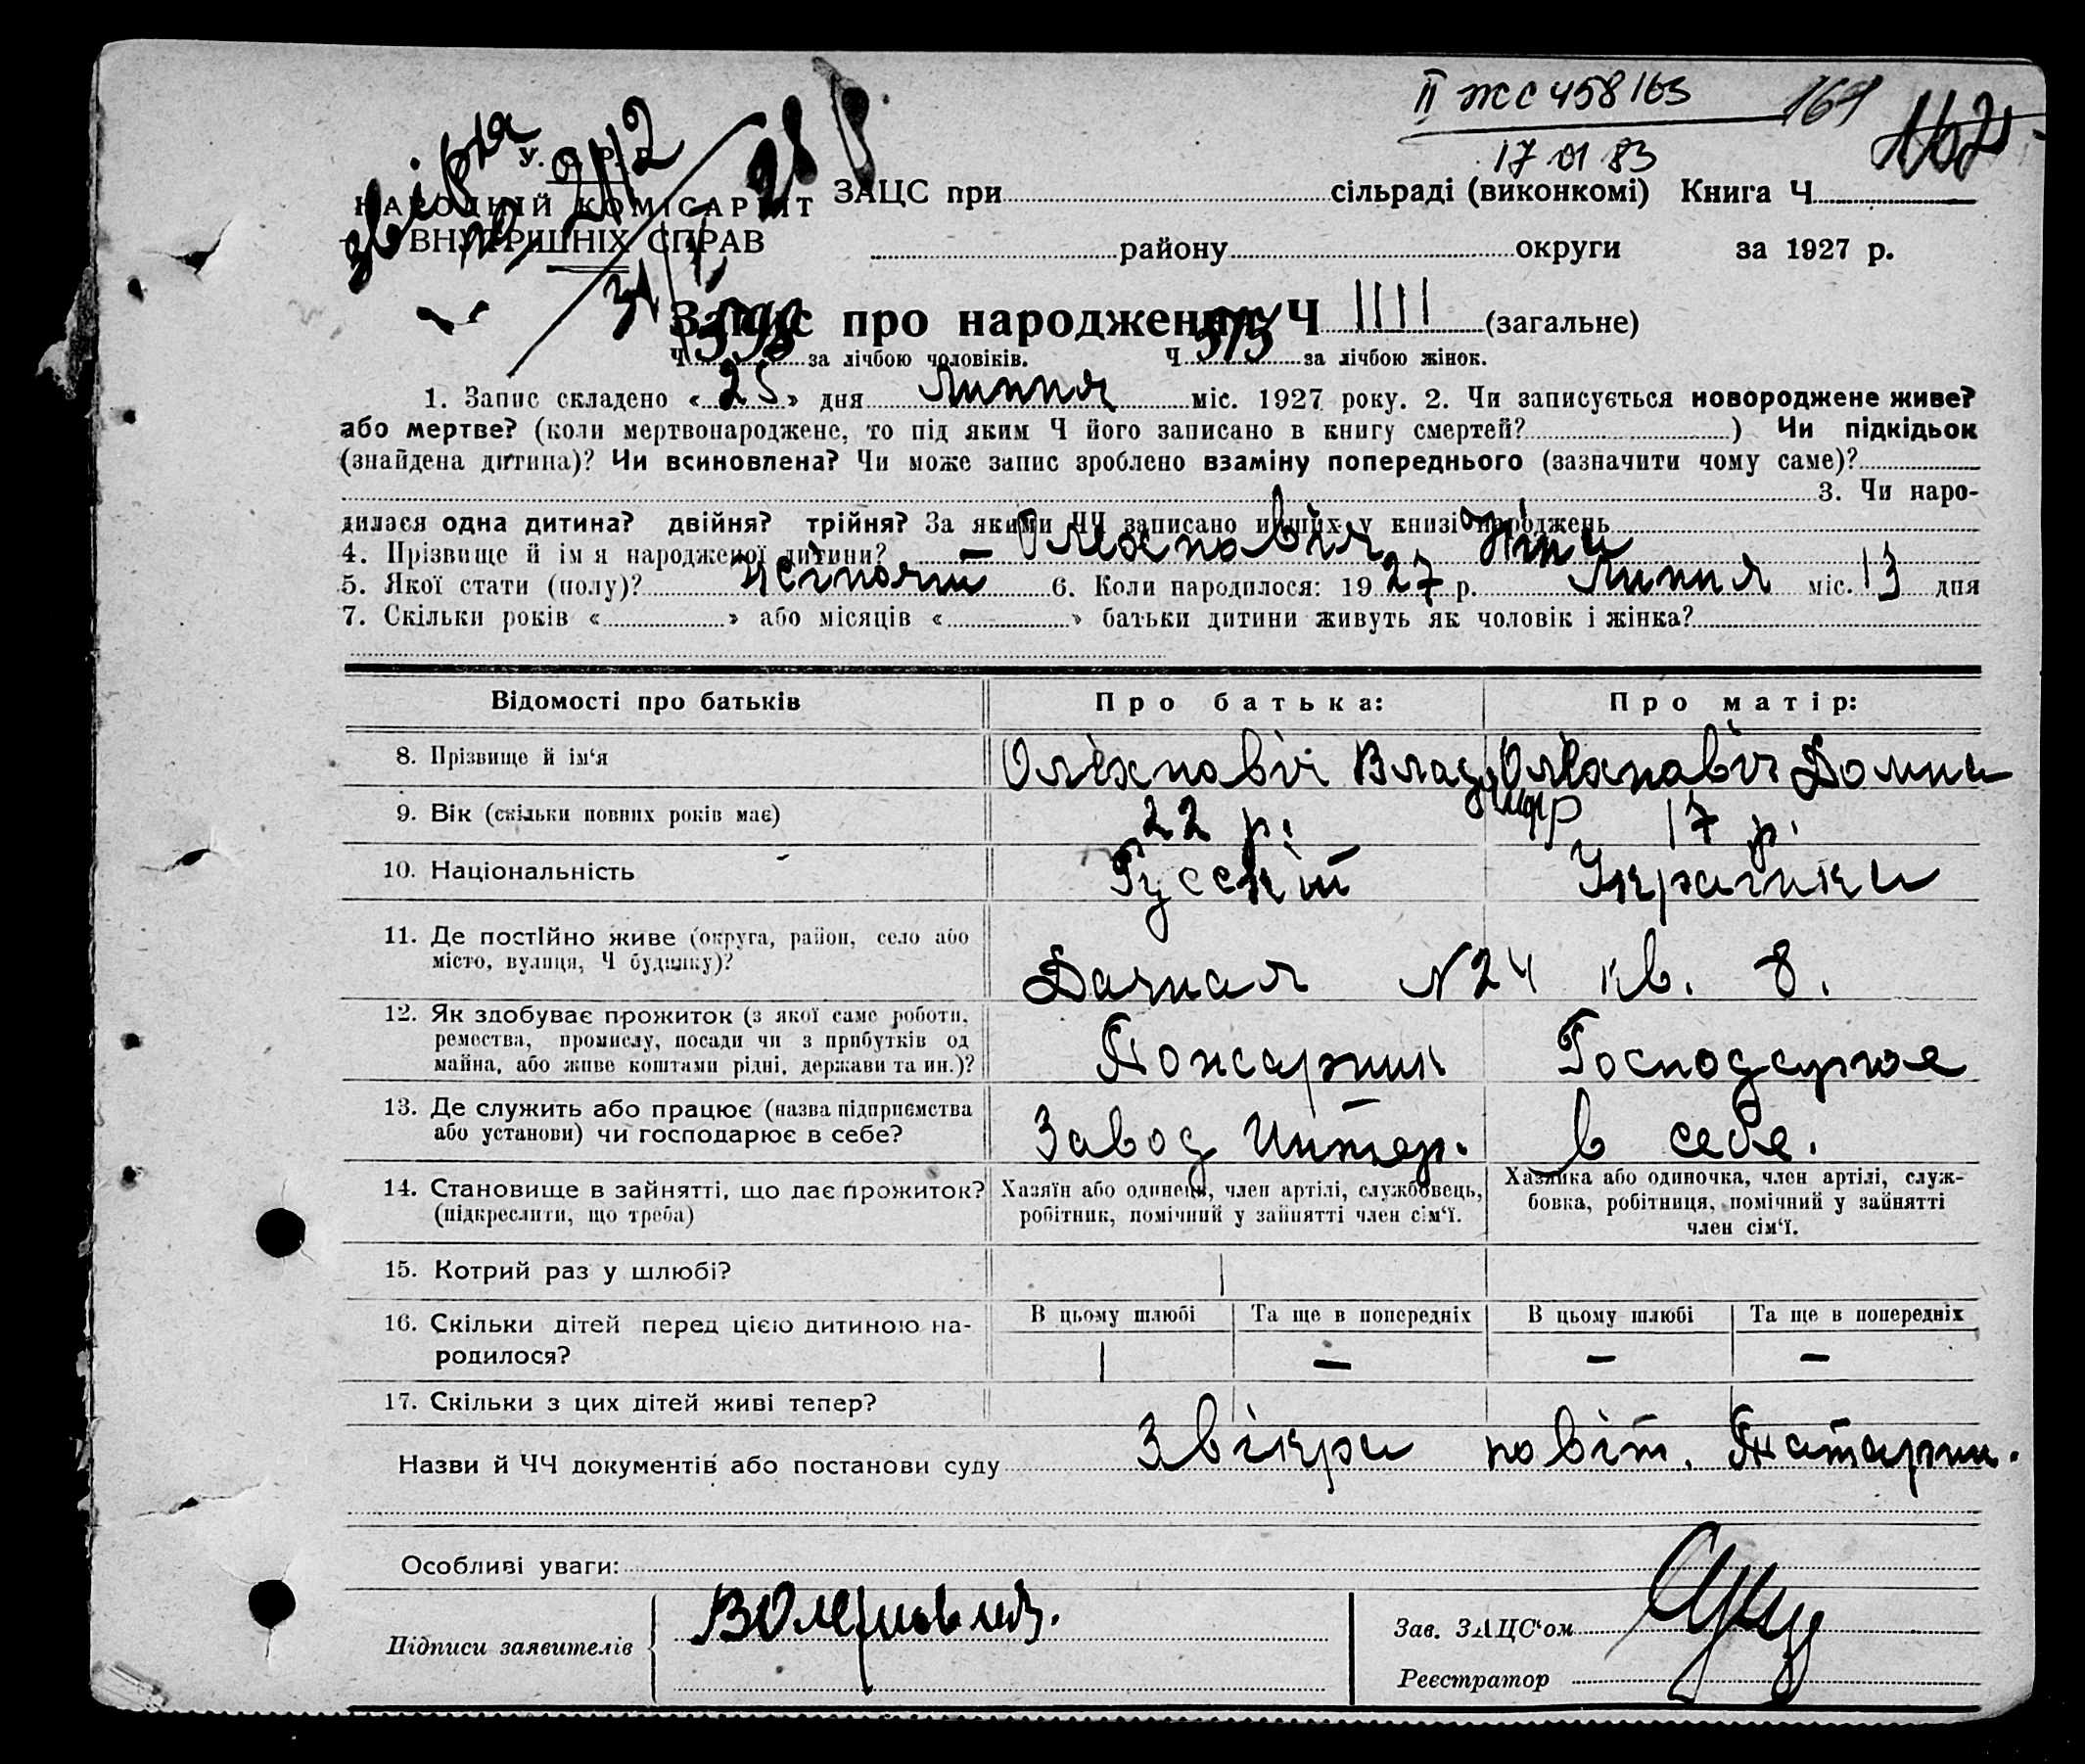 II ЖС 458163 164
17 01 83
У. С. Р. Р.
НАРОДНІЙ КОМІСАРІЯТ
ВНУТРІШНІХ СПРАВ
ЗАЦС при сільраді (виконкомі) Книга Ч
району округи за 1927 р.
Запис про народження Ч 1111 (загальне)
Ч 598 за лічбою чоловіків. Ч 513 за лічбою жінок.
1. Запис складено «25» дня Липня міс. 1927 року. 2. Чи записується новороджене живе?
або мертве? (коли мертвонароджене, то під яким Ч його записано в книгу смертей? ) Чи підкідьок
(знайдена дитина)? Чи всиновлена? Чи може запис зроблено взаміну попереднього (зазначити чому саме)?
3. Чи наро-
дилася одна дитина? двійня? трійня? За якими ЧЧ записано инших у книзі народжень
4. Прізвище й ім я народженої дитини? Ніна
5. Якої стати (полу)? жіночий 6. Коли народилося: 1927 р. Липня міс. 13 дня
7. Скільки років « » або місяців « » батьки дитини живуть як чоловік і жінка?
Відомості про батьків Про батька: Про матір:
8. Прізвище й ім‘я Владимир Домна
9. Вік (скільки повних років має) 22 р. 17 р.
10. Національність Русский Українка
11. Де постійно живе (округа, район, село або
місто, вулиця, Ч будинку)? Дачная N24 кв. 8.
12. Як здобуває прожиток (з якої саме роботи,
ремества, промислу, посади чи з прибутків од
майна, або живе коштами рідні, держави та ин.)? Пожарник Господарює
13. Де служить або працює (назва підприємства
або установи) чи господарює в себе? Завод Интер. в себе.
14. Становище в зайнятті, що дає прожиток?
(підкреслити, що треба)
Хазяїн або одинець, член артілі, службовець,
робітник, помічний у зайнятті член сім‘ї.
Хазяйка або одиночка, член артілі, служ-
бовка, робітниця, помічний у зайнятті
член сім‘ї.
15. Котрий раз у шлюбі? 1
16. Скільки дітей перед цією дитиною на-
родилося?
В цьому шлюбі Та ще в попередніх В цьому шлюбі Та ще в попередніх
1 — — —
17. Скільки з цих дітей живі тепер?
Назви й ЧЧ документів або постанови суду
Особливі уваги:
Підписи заявителів
Зав. ЗАЦС‘ом
Реєстратор